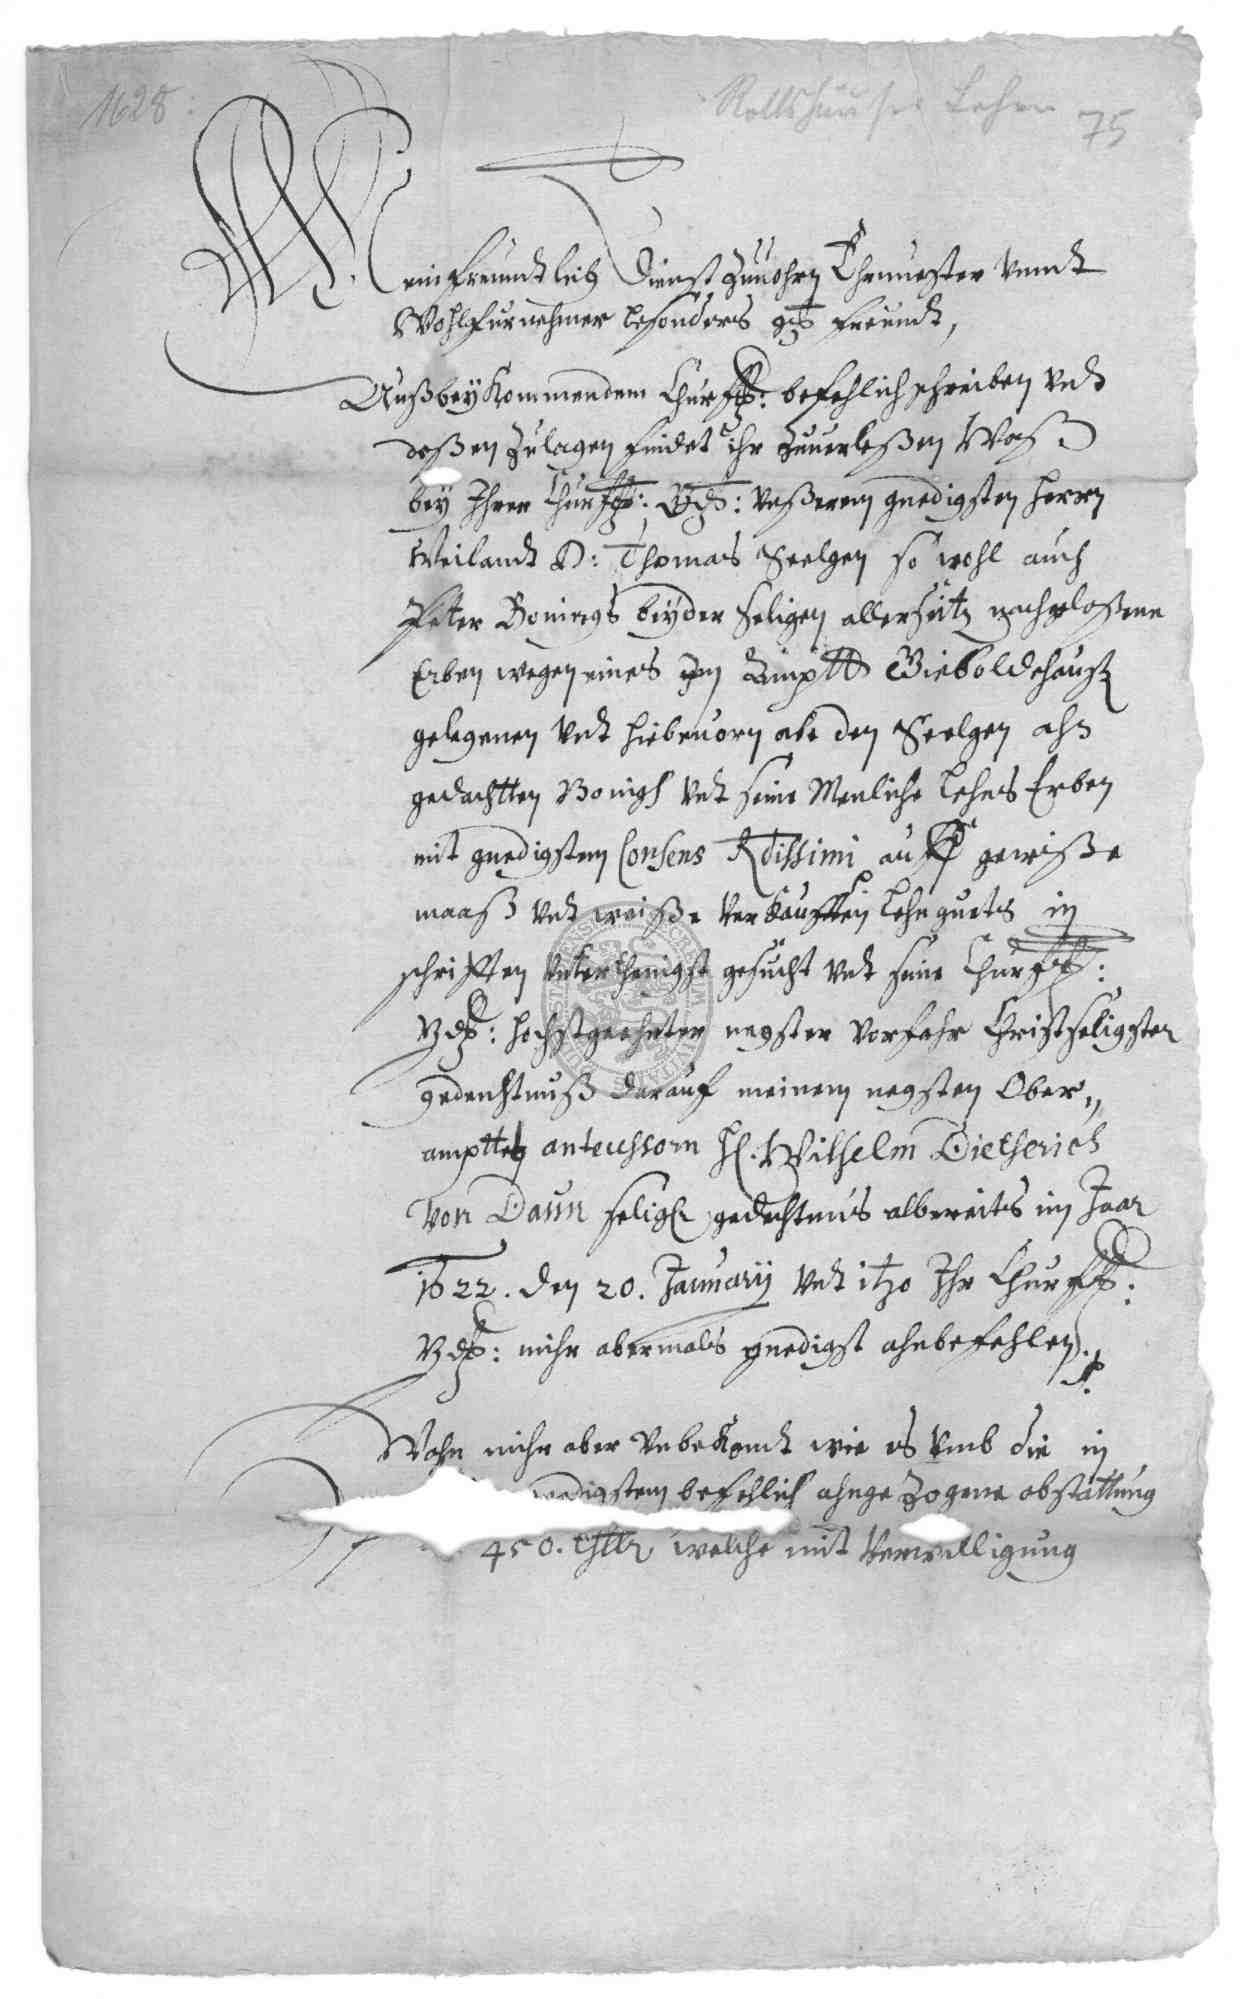 1628:
Rollshauser Lehen
75
Mein freundtlich Dienst zuuohrn Ehrnuester vnndt
Wohlfurnehmer besonders gut freundt,
Auß beykommendem Churfl: befehlich schreiben vndt
deßen Zulagen findet ihr zuuerleßen Waß
bey Ihrer Churfl: Gd: vnßerem gnedigsten Herrn
Weilandt D: Thomas Seelgen so wohl auch
Peter Bonings beyder Seligen allerseitz nachgelaßene
Erben wegen eines Im Ampt Gieboldehauß
gelegenen vndt hiebeuorn abe den Seelgen ahn
gedachtten Bonigh vndt seine Menliche Lehns Erben
mit gnedigstem Consens Rdissimi auff gewiße
maaß vndt weiße verkaufften Lehnguets in
schrifften vnterthenigst gesucht vndt seine Churfl:
Gd: hochstgeehrter negster Vorfahr Christseligster
gedechtnuß darauf meinem negsten Ober„
ampttes antecessorn H. Wilhelm Dietherich
von Daun selig gedechtnus albereits im Jaar
1622. den 20. January vndt itzo Ihr Churfl:
Gd: mihr abermals gnedigst ahnbefehlen.
Wahn mihr aber vnbekandt wie es vmb die in
gnedigstem befehlich ahngezogene abstattung
450. thlr welche mit Verwilligung